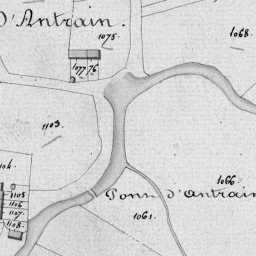 D'Antrain.
1075.
1068.
1077.76
1103
104.
1105
1106
1107.
1108.
1066.
Pont d'Antrain
1061.